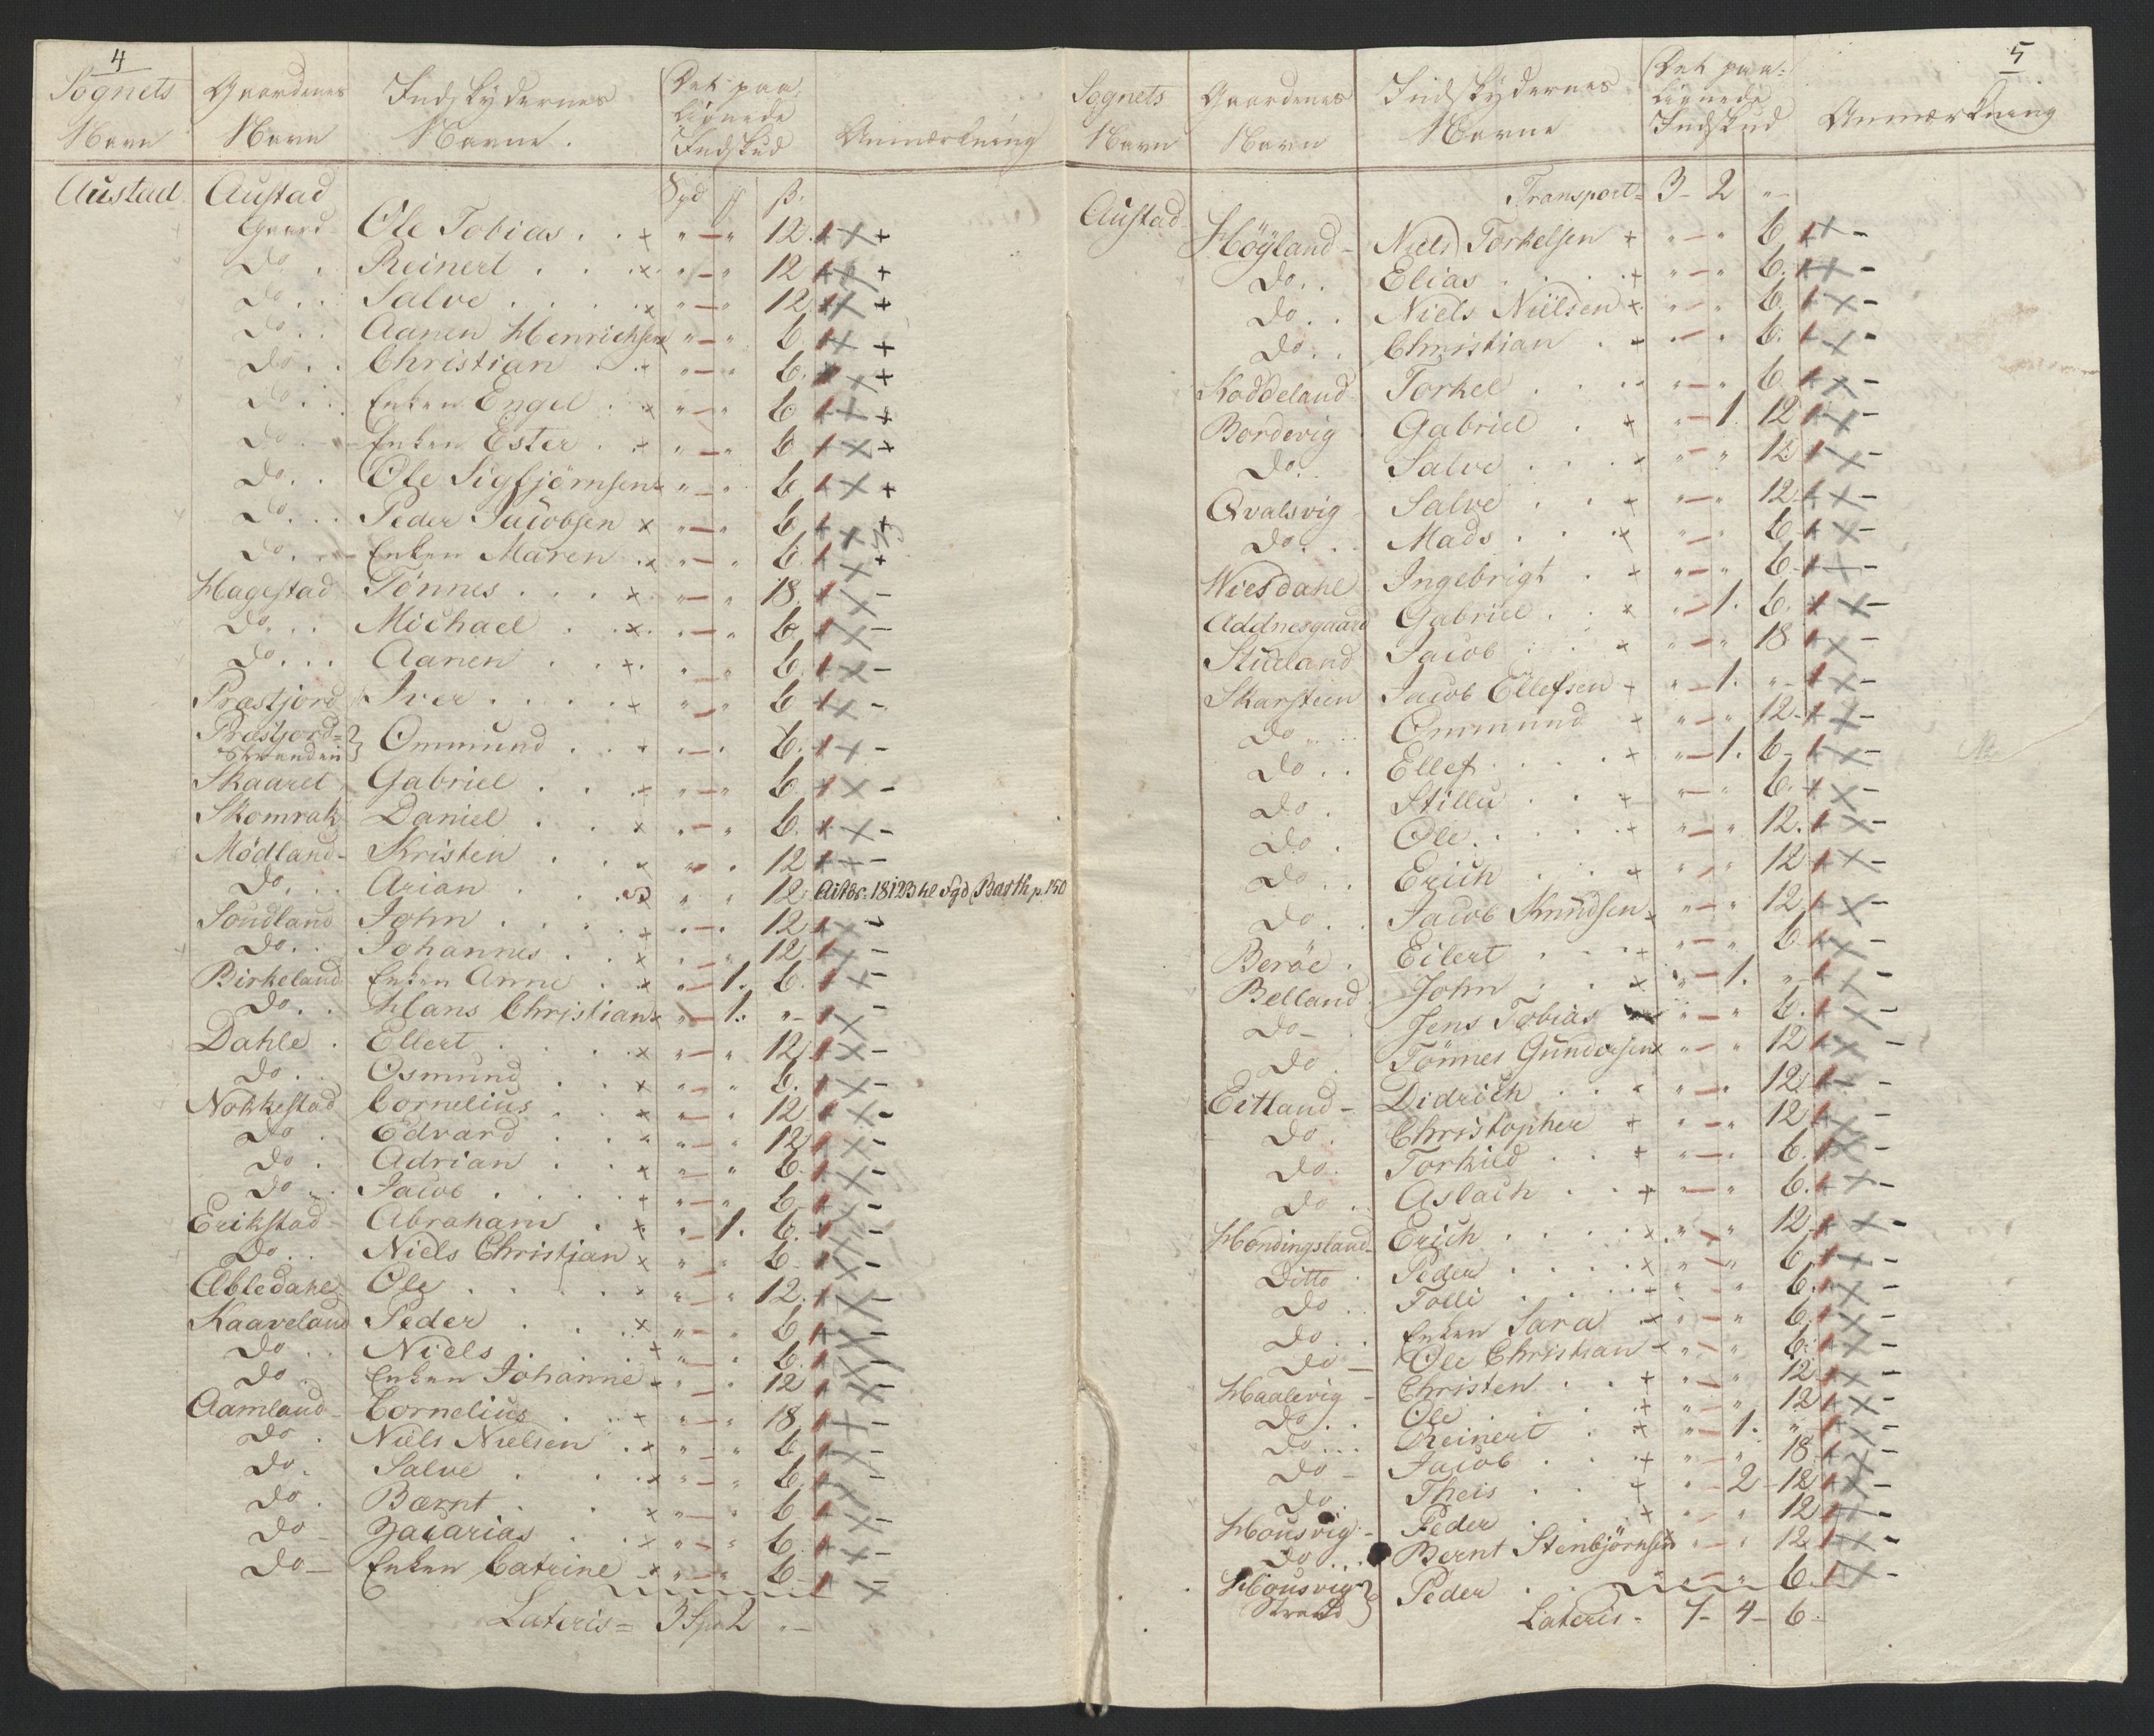 4
Sognets Navn | Gaardenes Navn | Indskydernes Navne. | Det paalignede Indskud | Anmærkning
Spd # ß.
Austad Austad
Gaard Ole Tobias . . + " — " 12.
Do . Reinert . . . x " — " 12
Do . . Salve . . . . x " — " 12.
Do . . Aanen Henrichsen " — " 6.
Do . . Christian . . + " — " 6.
Do . . Enken Engel . x " — " 6
Do . . Enken Ester . + " — " 6
Do . . Ole Sigbjørnsen " — " 6
Do . . . Peder Jacobsen x " — " 6
Do . . . Enken Maren . x " — " 6.
Hagestad Tönnes . . . x " — " 18.
Do . . . Michael . . x. " — " 6.
Do . . . Aanen . . . +. " " 6.
Præstjord Iver . . . . + " — " 6
Præstjord=Stranden } Ommund . . + " — " 6.
Skaaret Gabriel . . + " — " 6.
Skomrak Daniel . . x " — " 6.
Mödland - Kristen . . x " " 12
Do . . . Arian . . . " " 12 p. 150
Soudland John . . . + " — " 12
Do . . Johannes . . x " " 12
Birkeland Enken Anne . x " — 1. 6.
Do . . Hans Christian x " — 1. "
Dahle . Ellert . . . x " — " 12.
Do . . Osmund . . x " — " 6.
Nokkestad Cornelius . x " — " 12
Do . Edvard . . " — " 12
Do . Adrian . . + " — " 6.
Do . . Jacob . . . + " — " 6.
Erikstad - Abraham . x " — 1. 6.
Do . . Niels Christian x " " 6.
Abledahl Ole . . . x " — " 12.
Kaaveland Peder . . x " — " 6.
Do . . Niels . . . + " — " 6.
Do . Enken Johanne - " — " 12
Aamland - Cornelius . . + " — " 18.
Do . Niels Nielsen . x " — " 6
Do . Salve . . x " — " 6
Do . Bærnt . . x " — " 6
Do - Zacarias . . x " — " 6.
Do - Enken Catrine x " — " 6
Lateris = 3 Spd 2 " —
5
Sognets Navn | Gaardenes Navn | Indskydernes Navne | Det paalignede Indskud | Anmærkning
Transport = 3 - 2 " -
Austad Höyland - Niels Torkelsen + " — " 6
Do . . Elias . . . + " — " 6.
Do . . Niels Nielsen + " — " 6.
Do . . Christian . + " — " 6.
Koddeland Torkel . . . " — " 6
Bordevig Gabriel . + " — 1. 12
Do . . Salve . . . + " — " 12
Qvalsvig Salve . . + " — " 12.
Do . . . Mads . . . x " — " 6
Wiesdahl Ingebrigt . + " — " 6
Addnesgaard Gabriel . . x " — 1. 6.
Studland Jacob . . x " — " 18
Skarstein Jacob Ellefsen + " — 1. " -
Do . . Ommund + " — " 12.
Do . . Ellef . . . + " — 1. 6 -
Do . Stillu . . + " — " 6.
Do . Ole . . . + " — " 12.
Do . . Erich . . . + " — " 12
Do . . Jacob Knudsen x " — " 12
Beröe . Eilert . . . + " — " 6
Belland John . . x " — 1. "
Do - . Jens Tobias " — " 6.
Do . Tönnes Gundersen x " — " 12
Eitland - Didrich . . . " — " 12
Do . Christopher + " — " 12
Do . Torkild . . + " — " 6.
Do . . Aslach . . + " — " 6.
Hondingsland - Erich . . . x . " — " 12
Ditto . Peder . . . x " — " 6
Do . . Tolli . . . + " " 6.
Do . . Enken Sara x " — " 6
Do - Ole Christian x " — " 6.
Haalevig - Christen . . + " — " 12
Do . . Ole . . . + " — " 12
Do . . . Reinert . x " — 1. "
Do - Jacob . . . + " " 18
Do . Theis . . + " — 2 - 12
Housvig - Peder . . . + " " 12
Do . . . Bernt Stenbjørnsen " — " 12
Housvig Strand } Peder . . " — " 6
Lateris - 7 - 4 - 6 -